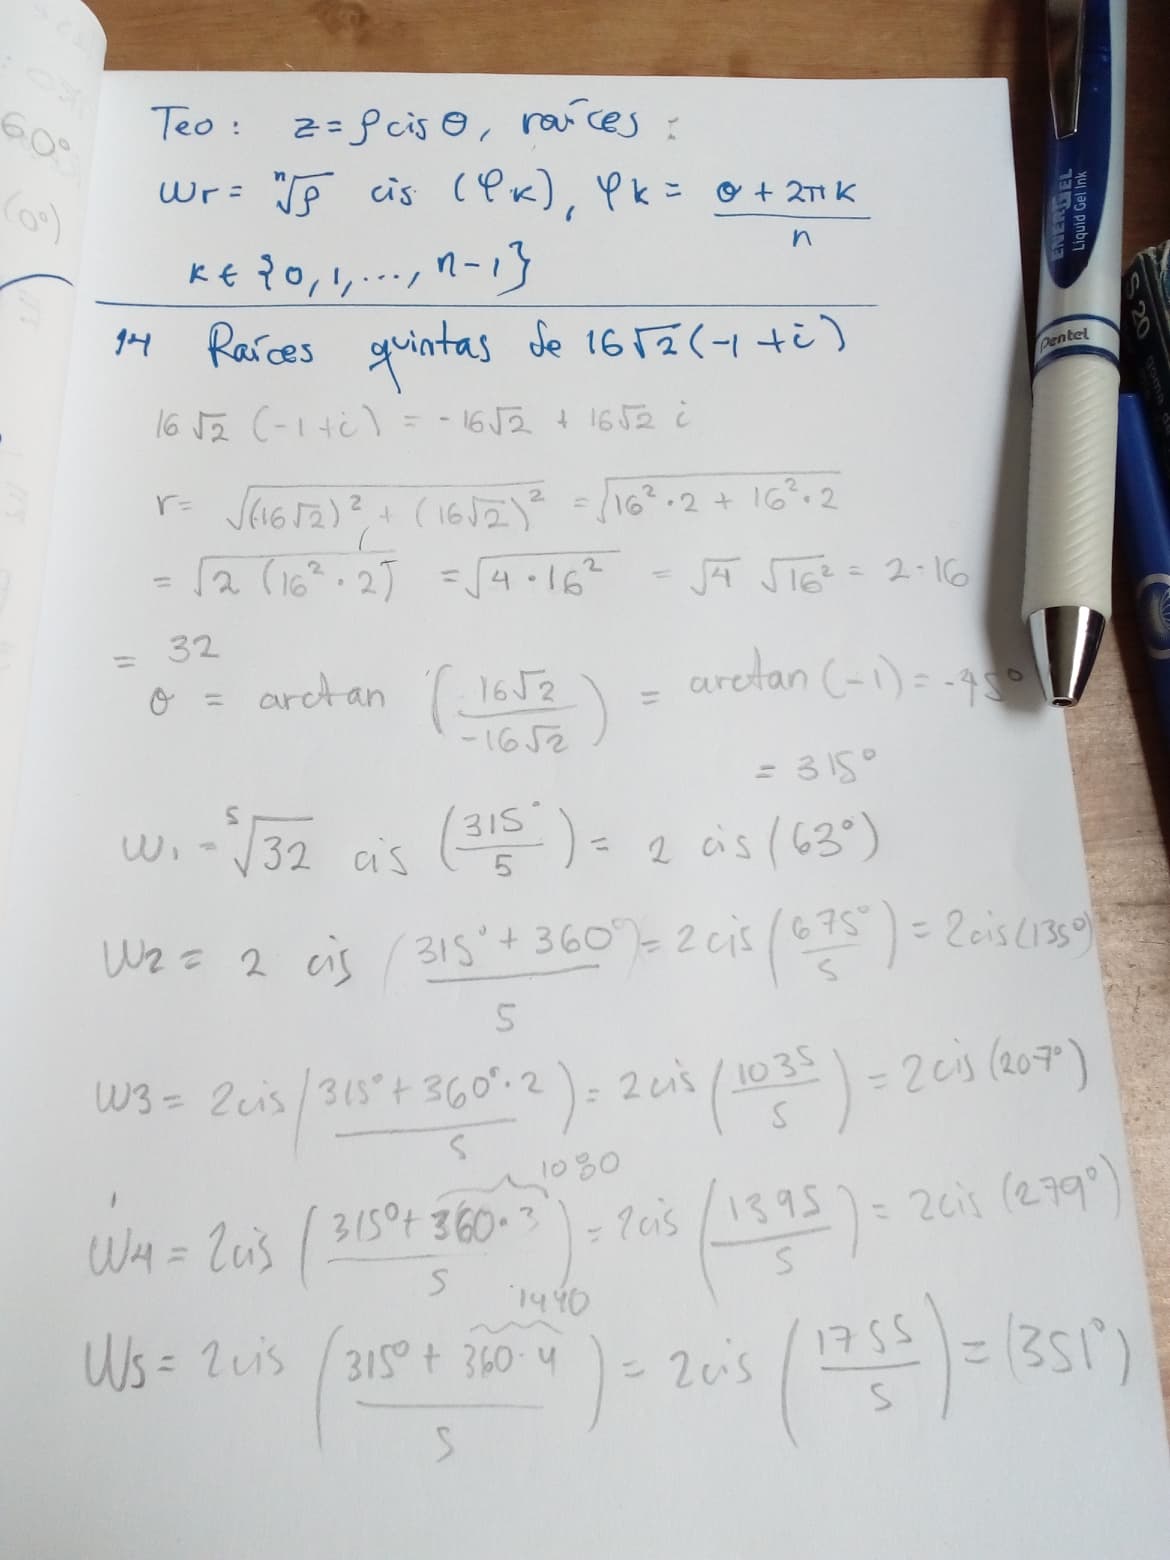 Teo: z = ρ cis θ, raíces:
wr = ⁿ√ρ cis (φk), φk = (θ + 2πk)/n
k ∈ {0, 1, ..., n-1}
14 Raíces quintas de 16√2(-1+i)
16√2 (-1+i) = -16√2 + 16√2 i
r = √((-16√2)² + (16√2)²) = √(16²·2 + 16²·2)
= √(2(16²·2)) = √(4·16²) = √4 √16² = 2·16
= 32
θ = arctan (16√2/-16√2) = arctan(-1) = -45°
= 315°
W1 = ⁵√32 cis (315°/5) = 2 cis (63°)
W2 = 2 cis ((315° + 360°)/5) = 2cis (675°/5) = 2cis(135°)
W3 = 2cis ((315° + 360°·2)/5) = 2cis (1035/5) = 2cis (207°)
1080
W4 = 2cis ((315° + 360·3)/5) = 2cis (1395/5) = 2cis (279°)
1440
W5 = 2cis ((315° + 360·4)/5) = 2cis (1755/5) = (351°)
60°
(0°)
ENERGEL
Liquid Gel Ink
Pentel
S 20